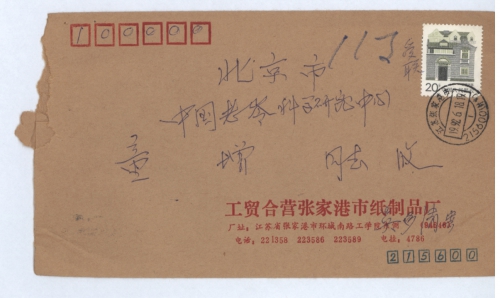 100000
113
北京市
中国老龄科研中心
童增 同志 收
20
工贸合营张家港市纸制品厂
厂址：江苏省张家港市环城南路工学院
电话：221358 223586 223589 电挂：4786
215600